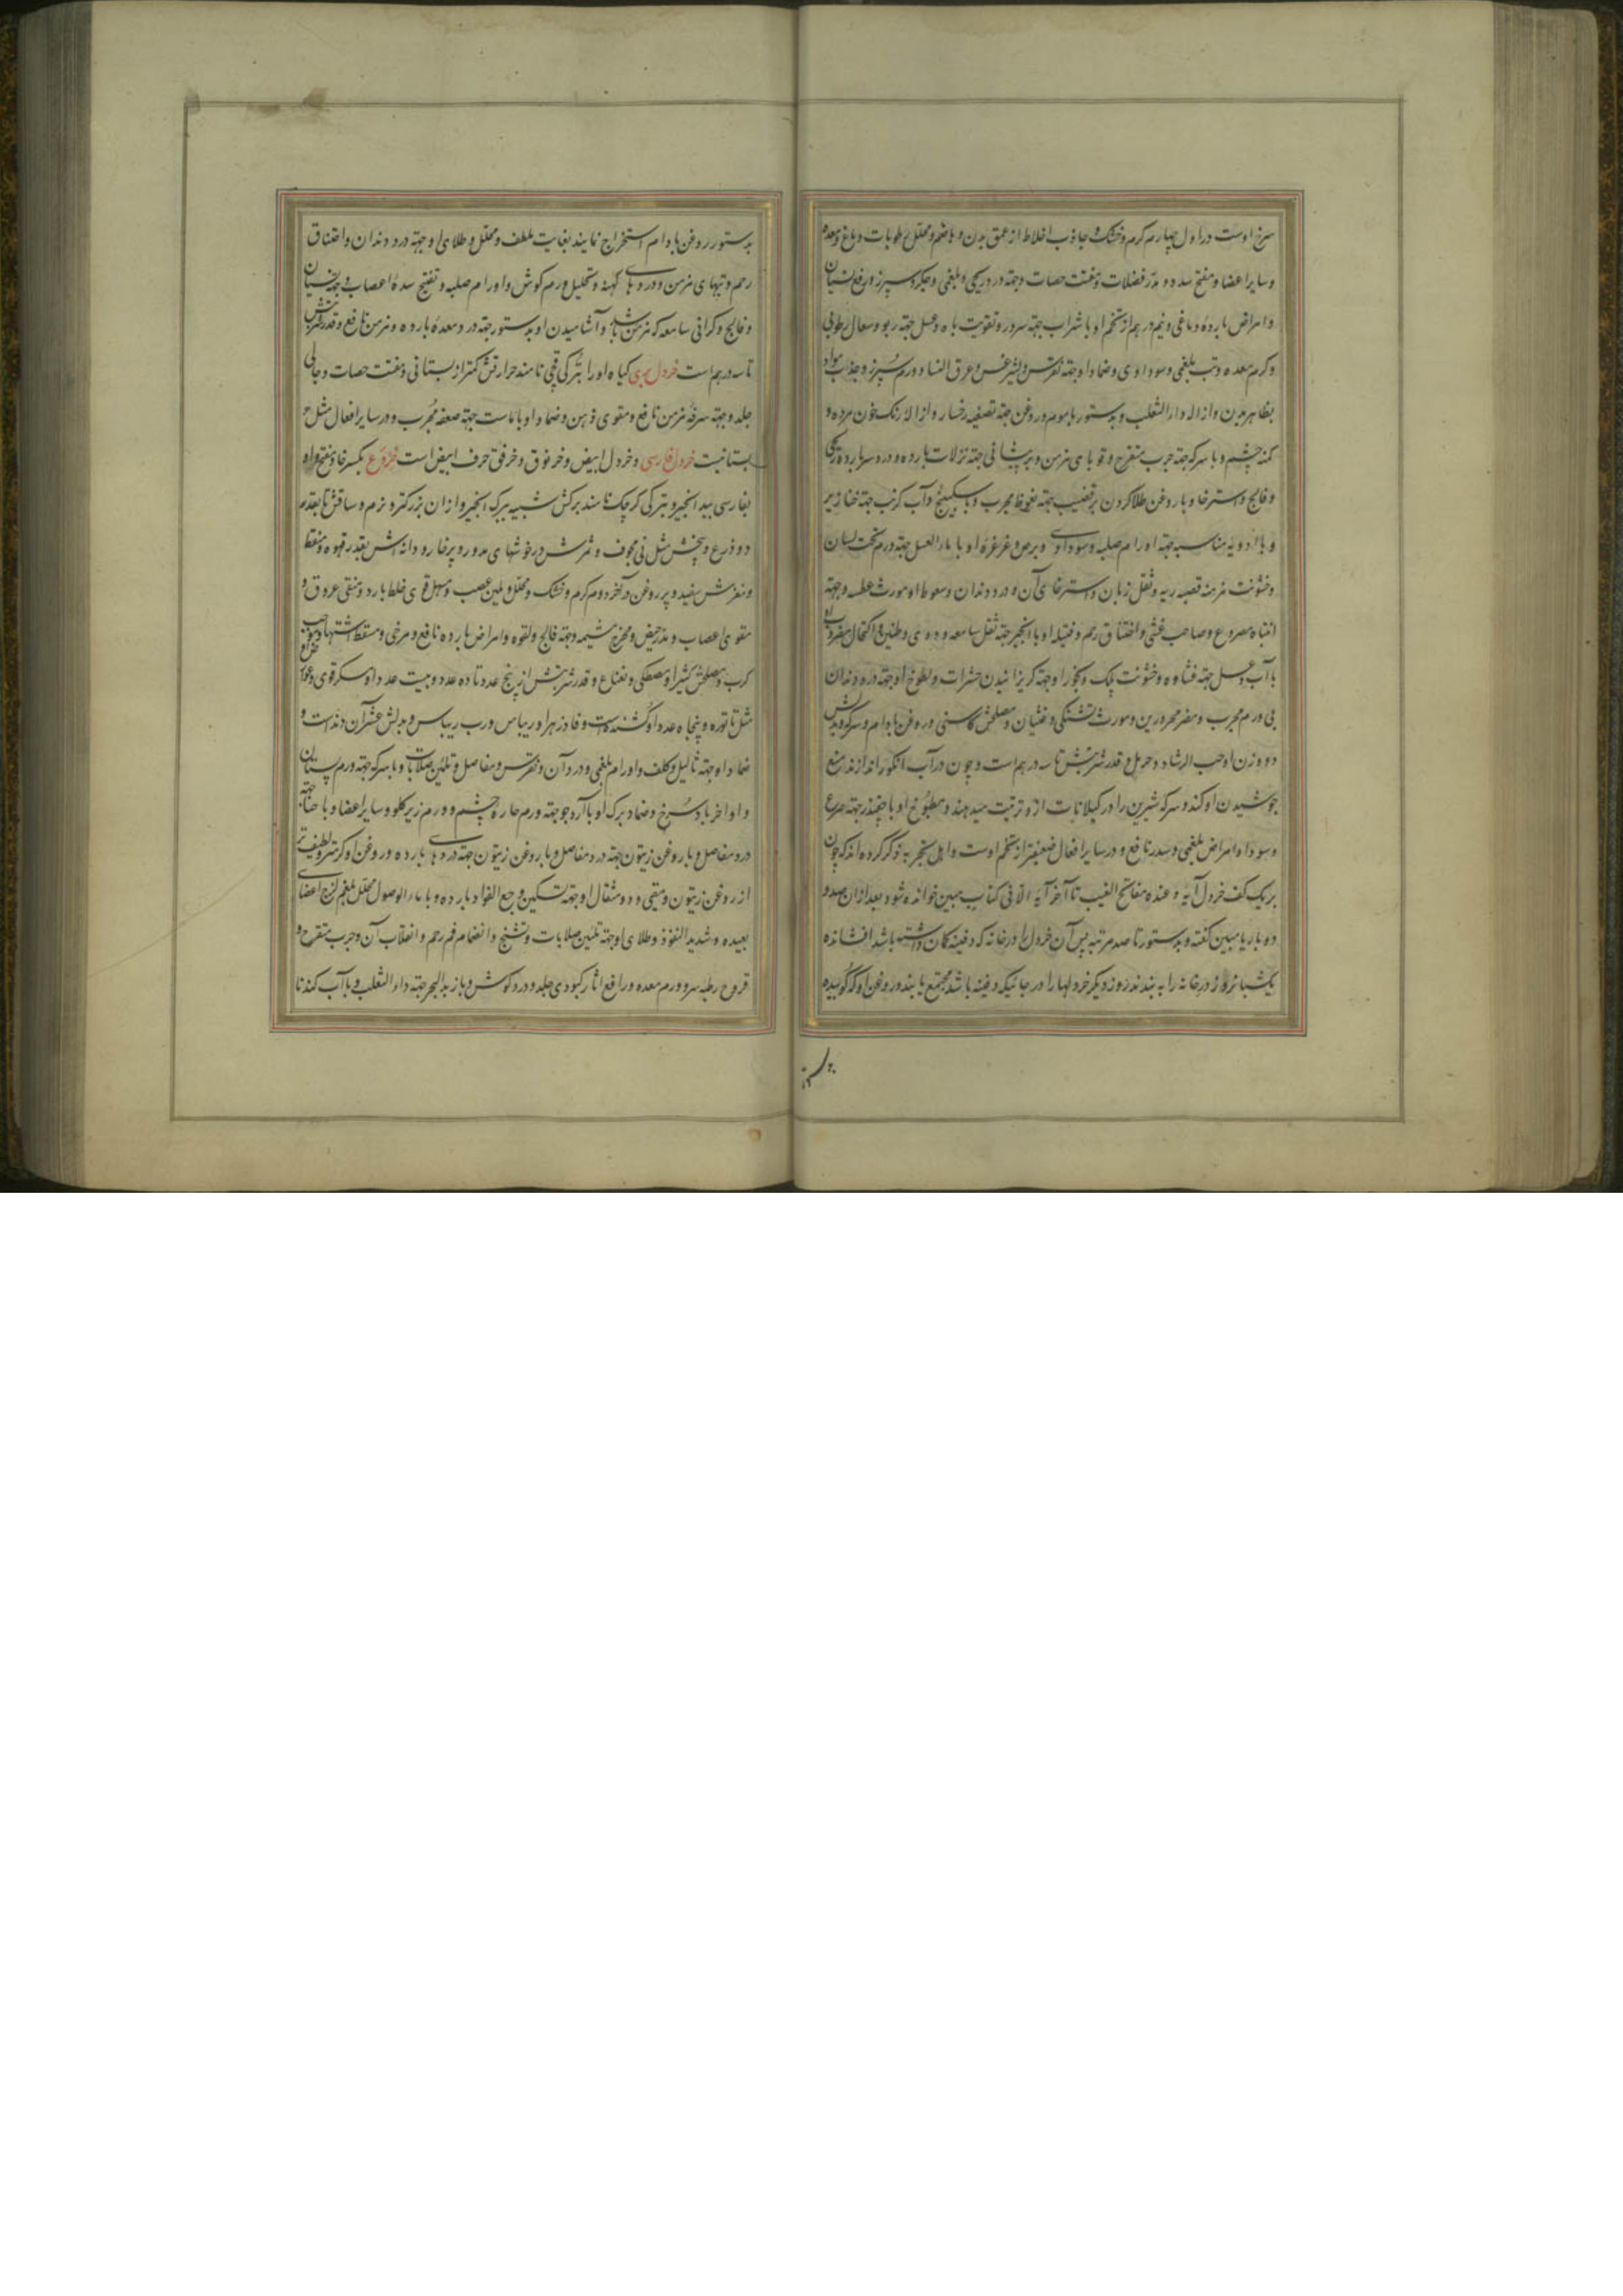 سرخ اوست در اول چهارم گرم و خشک و جاذب اخلاط از عمق بدن و هاضم و محلل رطوبات دماغ و معده
و سایر اعضا و مفتح سدد و مدر فضلات و مفتت حصات و جهة درد ریحی و بلغمی و جگر و سپرز و رفع نسیان
و امراض بارده دماغی و نیم درهم از تخم او با شراب جهة سردرد و تقویت باه و عسل جهة ربو و سعال رطوبی
و کرم معده و تب بلغمی و سوداوی و ضماد او جهة نقرس و لیثرغس و عرق النسا و ورم سپرز و جذب مواد
بظاهر بدن و ازاله داء الثعلب و بدستور با موم و روغن جهة تصفیه رخسار و ازاله رنک خون مرده و
کمنه چشم و با سرکه جهة جرب متقرح و قوبای مزمن و بر پیشانی جهة نزلات بارده و درد سر بارد و ترکی
و فالج و استرخا و با روغن طلا کردن بر قضیب جهة نعوظ مجرب و با سکبینج و آب کرنب جهة خنازیر
و با ادویه مناسبه جهة اورام صلبه و سوداوی و برص و غرغره او با ماء العسل جهة ورم تحت لسان
و خشونت مزمنه قصبه ریه و ثقل زبان و استرخای آن و درد دندان و سعوط او مورث عطسه و جهة
انتباه مصروع و صاحب غشی و اختناق رحم و فتیله او با انجیر جهة ثقل سامعه و دوی و طنین و اکتحال مضروب او
با آب و عسل جهة غشاوه و خشونت پلک و بخور او جهة گریزانیدن حشرات و لطوخ او جهة درد دندان
بی ورم مجرب و مضر محرورین و مورث تشنکی و غثیان و مصلحش کاسنی و روغن بادام و سرکه و بدلش
دو وزن او حب الرشاد و حرمل و قدر شربتش تا سه درهم است و چون در آب انکور اندازند منع
جوشیدن او کند و سرکه شیرین را در کیلانات ازو ترتیب میدهند و مطبوخ او با چغندر جهة صرع
و سودا و امراض بلغمی و سدر نافع و در سایر افعال ضعیفتر از تخم اوست و اهل تجربه ذکر کرده اند که چون
بر یک کف خردل آیه و عنده مفاتح الغیب تا آخر آیه الا فی کتاب مبین خوانده شود بعد از ان صد و
دو بار یا مبین گفته و بدستور تا صد مرتبه پس آن خردل را در خانه که دفینه گمان داشته باشد افشانده
یکشبانروز در خانه را به بندند روز دیگر خردلها را در جائیکه دفینه باشد مجتمع یابند و روغن او که کوبیده
بدستور روغن بادام استخراج نمایند بغایت ملطف و محلل و طلای او جهة درد دندان و اختناق
رحم و تبهای مزمن و دردهای کهنه و تحلیل ورم کوش و اورام صلبه و تفتیح سده اعصاب و جهة نسیان
و فالج و کرانی سامعه که مزمن باشد و آشامیدن او بدستور جهة درد معده بارده و مزمن نافع و قدر شربتش
تا سه درهم است خردل بری گیاه او را بترکی قچی نامند حرارتش کمتر از بستانی و مفتت حصات و جالی
جلد و جهة سرفه مزمن نافع و مقوی ذهن و ضماد او با ماست جهة صعفه مجرب و در سایر افعال مثل
بستانیست خردل فارسی و خردل ابیض و خرنوق و خرفق حرف ابیض است خروع بکسر خا و فتح واو
بفارسی بید انجیر و بترکی کرچک نامند برکش شبیه ببرک انجیر و از ان بزرکتر و نرم و ساقش تا بقدر
دو ذرع و بیخش مثل نی مجوف و ثمرش در خوشهای مدور و پرخار و دانه اش بقدر قهوه و منقط
و مغزش سفید و پر روغن در آخر دوم گرم و خشک و محلل و ملین عصب و مسهل قوی خلط بارد و منقی عروق و
مقوی اعصاب و مدر حیض و مخرج مشیمه و جهة فالج و لقوه و امراض بارده نافع و مرخی و مسقط اشتها و موجب
کرب و مصلحش کتیرا و مصطکی و نعناع و قدر شربتش از پنج عدد تا ده عدد و بیست عدد او مسکر قوی و
مثل تاتوره و پنجاه عدد او کشنده است و فادزهر او ریباس و رب ریباس و بدلش عشر آن دند است و
ضماد او جهة ثالیل و کلف و اورام بلغمی و درد آن و نقرس و مفاصل و تلئین صلابات و با سرکه جهة ورم پستان
و اواخر باد سرخ و ضماد برک او با آرد جو جهة ورم حاره چشم و ورم زیر کلو و سایر اعضا و با حنا جهة
درد مفاصل و با روغن زیتون جهة درد مفاصل و با روغن زیتون جهة دردهای بارده و روغن او کرمتر و لطیف تر
از روغن زیتون و منقی و دو مثقال او جهة تسکین وجع الفواد بارده و با ماء الاصول محلل بلغم لزج اعضای
بعیده و شدید النفوذ و طلای او جهة تلئین صلابات و تشنج و انضمام فم رحم و انقلاب آن و جرب متقرح و
قروح رطبه سر و ورم معده و رافع اثار کبودی جلد و درد کوش و با زبد البحر جهة داء الثعلب و با آب کندنا
بدستور